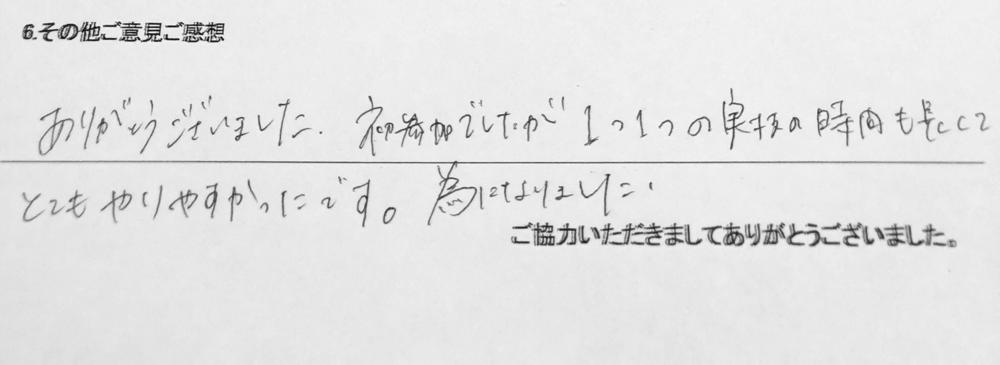 6.その他ご意見ご感想
ありがとうございました. 初参加でしたが 1つ1つの実技の時間も長くて
とてもやりやすかったです。為になりました.
ご協力いただきましてありがとうございました。